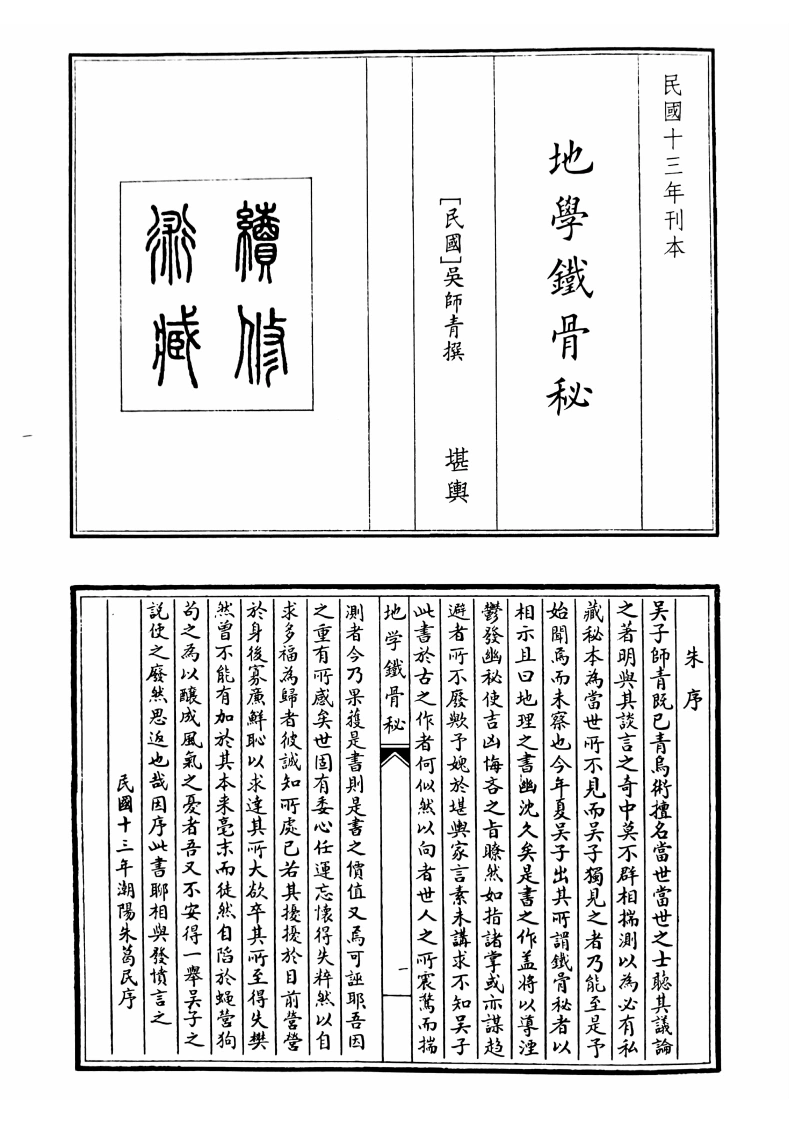 民國十三年刊本
地學鐵骨秘
[民國]吳師青撰　堪輿
續修
術藏
朱序
吳子師青既已青烏術擅名當世當世之士聽其議論
之著明與其談言之奇中莫不群相揣測以為必有私
藏秘本為當世所不見而吳子獨見之者乃能至是予
始聞焉而未察也今年夏吳子出其所謂鐵骨秘者以
相示且曰地理之書幽沈久矣是書之作盖將以導湮
鬱發幽秘使吉凶悔吝之旨瞭然如指諸掌或亦謀趋
避者所不廢歟予媿於堪輿家言素未講求不知吳子
此書於古之作者何似然以向者世人之所震驚而揣
地学鐵骨秘
一
測者今乃果獲是書則是書之價值又焉可誣耶吾因
之重有所感矣世固有委心任運忘懷得失粹然以自
求多福為歸者彼誠知所處已若其擾擾於目前營營
於身後寡廉鮮恥以求達其所大欲卒其所至得失樊
然曾不能有加於其本来毫末而徒然自陷於蠅营狗
苟之為以釀成風氣之憂者吾又不安得一舉吳子之
説使之廢然思返也哉因序此書聊相與發憤言之
民國十三年潮陽朱葛民序